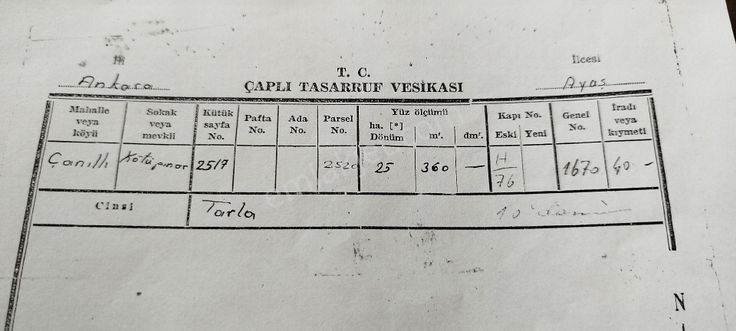 İli
İlcesi
T. C.
Ankara
ÇAPLI TASARRUF VESİKASI
Ayaş
Mahalle veya köyü
Sokak veya mevkii
Kütük sayfa No.
Pafta No.
Ada No.
Parsel No.
Yüz ölçümü
ha. [*] Dönüm
m².
dm².
Kapı No.
Eski
Yeni
Genel No.
İradı veya kıymeti
Çanıllı
Kötüpınar
2517
2520
25
360
—
H/76
1670
40 -
Cinsi
Tarla
N